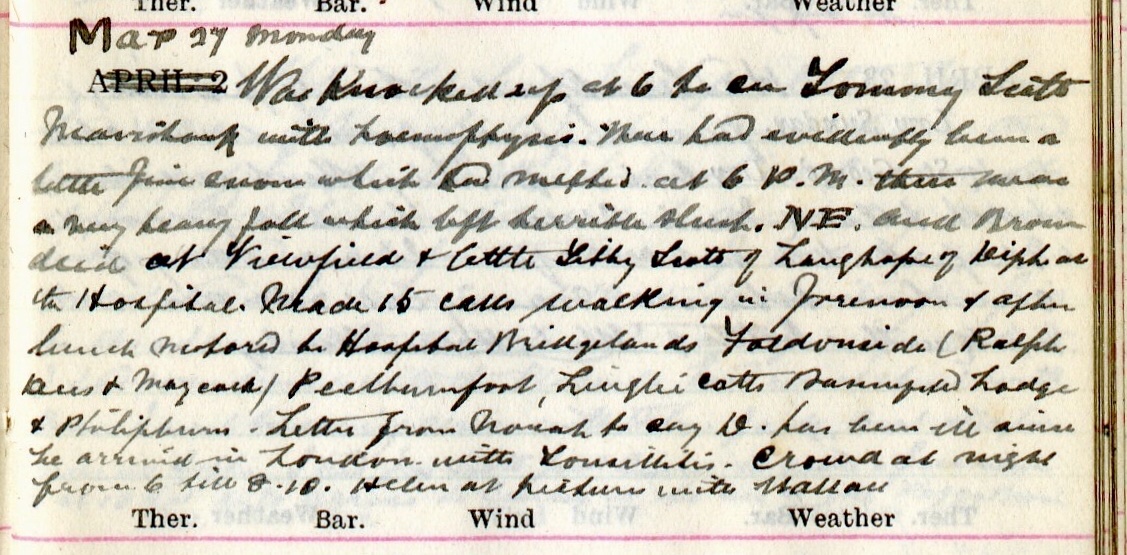 Ther. Bar. Wind Weather
Mar 27 Monday
APRIL 2 Was Knocked up at 6 to see Tommy Scott
Mavisbank with haemoptysis. There had evidently been a
little fine snow which had melted. at 6 P.M. there was
a very heavy fall which left terrible slush. NE. Brown
died at Viewfield & little Libby Scott of Langhope of Diph at
the Hospital. Made 15 calls walking in forenoon & after
lunch motored to Hospital Bridgelands Faldonside (Ralph
Dees & ) Peelburnfoot, Linglie cotts Lodge
& Philipburn. Letter from Norah to say D. has been ill since
he arrived in London with Tonsillitis. Crowd at night
from 6 till 8.10. Helen at with
Ther. Bar. Wind Weather